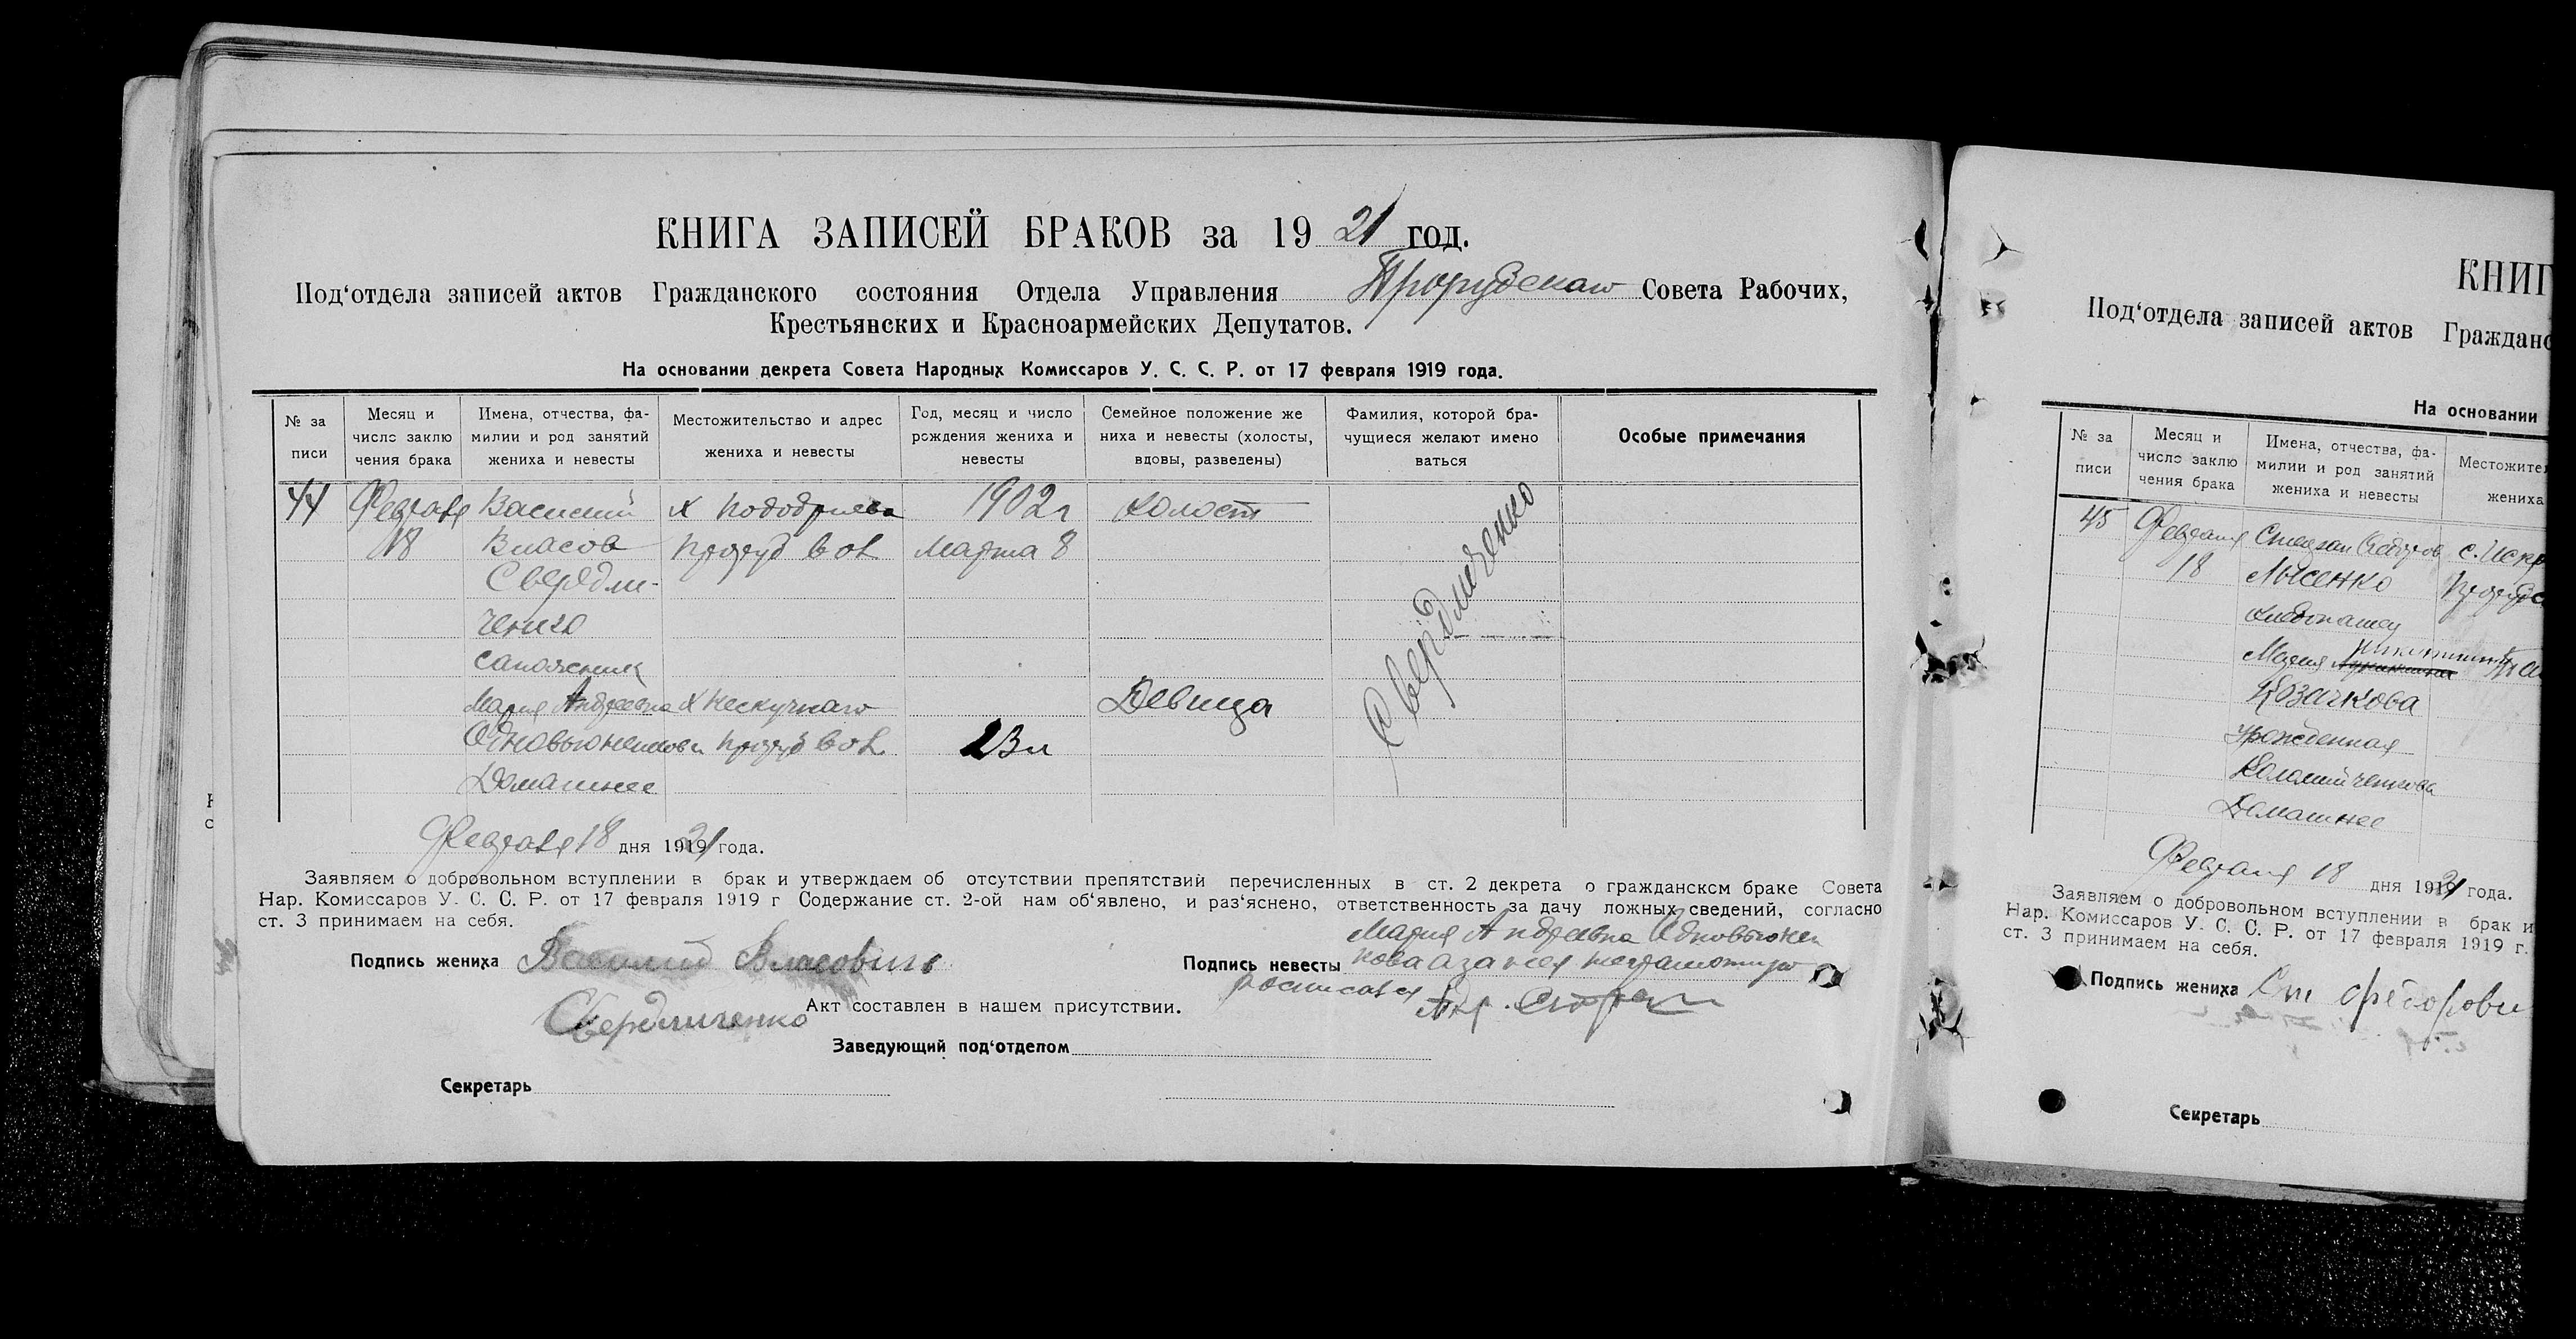 КНИГА ЗАПИСЕЙ БРАКОВ за 1921 год.
Под‘отдела записей актов Гражданского состояния Отдела Управления Прорубскаго Совета Рабочих,
Крестьянских и Красноармейских Депутатов.
На основании декрета Совета Народных Комиссаров У. С. С. Р. от 17 февраля 1919 года.
№ за писи
Месяц и число заклю чения брака
Имена, отчества, фа- милии и род занятий жениха и невесты
Местожительство и адрес жениха и невесты
Год, месяц и число рождения жениха и невесты
Семейное положение же ниха и невесты (холосты, вдовы, разведены)
Фамилия, которой бра- чущиеся желают имено ваться
Особые примечания
44 Февраля Василий х 1902 г холост
18 Власов Проруб вол Марта 8
Свердли-
ченко
сапожник
Мария Андреевна х Нескучнаго Девица
Проруб вол 23 л
Домашнее
Свердличенко
Февраля 18 дня 1921 года.
Заявляем о добровольном вступлении в брак и утверждаем об отсутствии препятствий перечисленных в ст. 2 декрета о гражданском браке Совета
Нар. Комиссаров У. С. С. Р. от 17 февраля 1919 г Содержание ст. 2-ой нам об‘явлено, и раз‘яснено, ответственность за дачу ложных сведений, согласно
ст. 3 принимаем на себя.
Подпись жениха Василий Власовичь
Свердличенко
Подпись невесты Мария Андреевна
росписался
Акт составлен в нашем присутствии.
Заведующий под‘отделом
Секретарь
КНИГ
Под‘отдела записей актов Гражданс
На основании
№ за писи
Месяц и число заклю чения брака
Имена, отчества, фа- милии и род занятий жениха и невесты
Местожител жениха
45 Февраля Степан Федоров с. Искр
18 Лысенко
хлебопашец
Мария
Козачкова
урожденная
Коломийченкова
Домашнее
Февраля 18 дня 1921 года.
Заявляем о добровольном вступлении в брак и
Нар. Комиссаров У. С. С. Р. от 17 февраля 1919 г.
ст. 3 принимаем на себя.
Подпись жениха
Секретарь